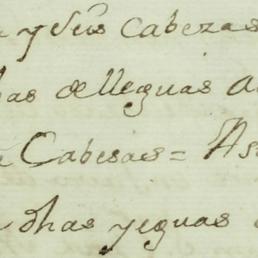 y seis Cabezas
has de lleguas
Cabesas = As
dhas yeguas